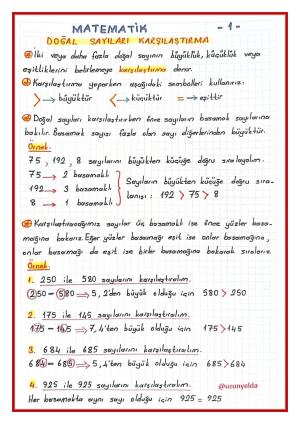 MATEMATİK - 1 -
DOĞAL SAYILARI KARŞILAŞTIRMA
İki veya daha fazla doğal sayının büyüklük, küçüklük veya
eşitliklerini belirlemeye karşılaştırma denir.
Karşılaştırma yaparken aşağıdaki sembolleri kullanırız:
> → büyüktür < → küçüktür = → eşittir
Doğal sayıları karşılaştırırken önce sayıların basamak sayılarına
bakılır. Basamak sayısı fazla olan sayı diğerlerinden büyüktür.
Örnek:
75, 192, 8 sayılarını büyükten küçüğe doğru sıralayalım.
75 → 2 basamaklı
192 → 3 basamaklı
8 → 1 basamaklı
Sayıların büyükten küçüğe doğru sıra-
lanışı: 192 > 75 > 8
Karşılaştıracağımız sayılar üç basamaklı ise önce yüzler basa-
mağına bakarız. Eğer yüzler basamağı eşit ise onlar basamağına,
onlar basamağı da eşit ise birler basamağına bakarak sıralarız.
Örnek:
1. 250 ile 580 sayılarını karşılaştıralım.
250 - 580 → 5, 2'den büyük olduğu için 580 > 250
2. 175 ile 145 sayılarını karşılaştıralım.
175 - 145 → 7, 4'ten büyük olduğu için 175 > 145
3. 684 ile 685 sayılarını karşılaştıralım.
684 - 685 → 5, 4'ten büyük olduğu için 685 > 684
4. 925 ile 925 sayılarını karşılaştıralım. @uzunyolda
Her basamakta aynı sayı olduğu için 925 = 925